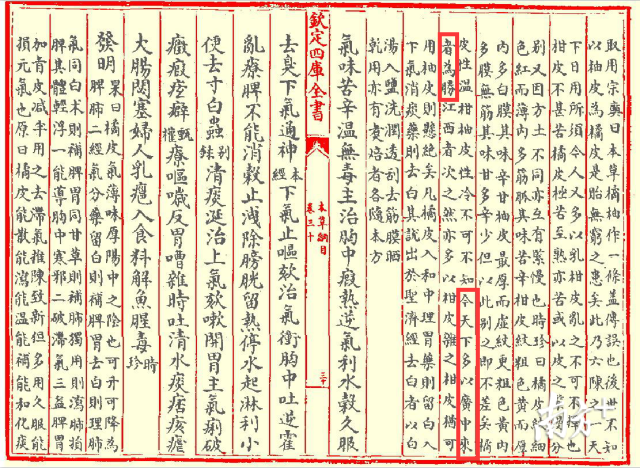 取用宗奭曰本草橘柚作一條蓋傳誤也後世不知
以柚皮為橘皮是貽無窮之患矣此乃六陳之一天
下日用所須今人又多以乳柑皮亂之不可不擇也
柑皮不甚苦橘皮極苦至熟亦苦或以皮之緊慢分
別又因方土不同亦互有緊慢也時珍曰橘皮紋細
色紅而薄內多筋脉其味苦辛柑皮紋粗色黃而厚
內多白膜其味辛甘柚皮最厚而虛紋更粗色黃內
多膜無筋其味甘多辛少但以此別之即不差矣橘
皮性溫柑柚皮性冷不可不知今天下多以廣中來
者為勝江西者次之然亦多以柑皮雜之柑皮猶可
用柚皮則懸絕矣凡橘皮入和中理胃藥則留白入
下氣消痰藥則去白其說出於聖濟經去白者以白
湯入鹽洗潤透刮去筋膜晒
乾用亦有煮焙者各隨本方
氣味苦辛溫無毒主治胸中瘕熱逆氣利水穀久服
欽定四庫全書
本草綱目
卷三十
去臭下氣通神本經下氣止嘔欬治氣衝胸中吐逆霍
亂療脾不能消穀止洩除膀胱留熱停水起淋利小
便去寸白蟲別錄清痰涎治上氣欬嗽開胃主氣痢破
癥瘕痃癖甄權療嘔噦反胃嘈雜時吐清水痰痞痎瘧
大腸閟塞婦人乳癰入食料解魚腥毒時珍
發明杲曰橘皮氣薄味厚陽中之陰也可升可降為
脾肺二經氣分藥留白則補脾胃去白則理肺
氣同白术則補脾胃同甘草則補肺獨用則瀉肺損
脾其體輕浮一能導胸中寒邪二破滯氣三益脾胃
加青皮減半用之去滯氣推陳致新但多用久服能
損元氣也原曰橘皮能散能瀉能溫能補能和化痰
南方+